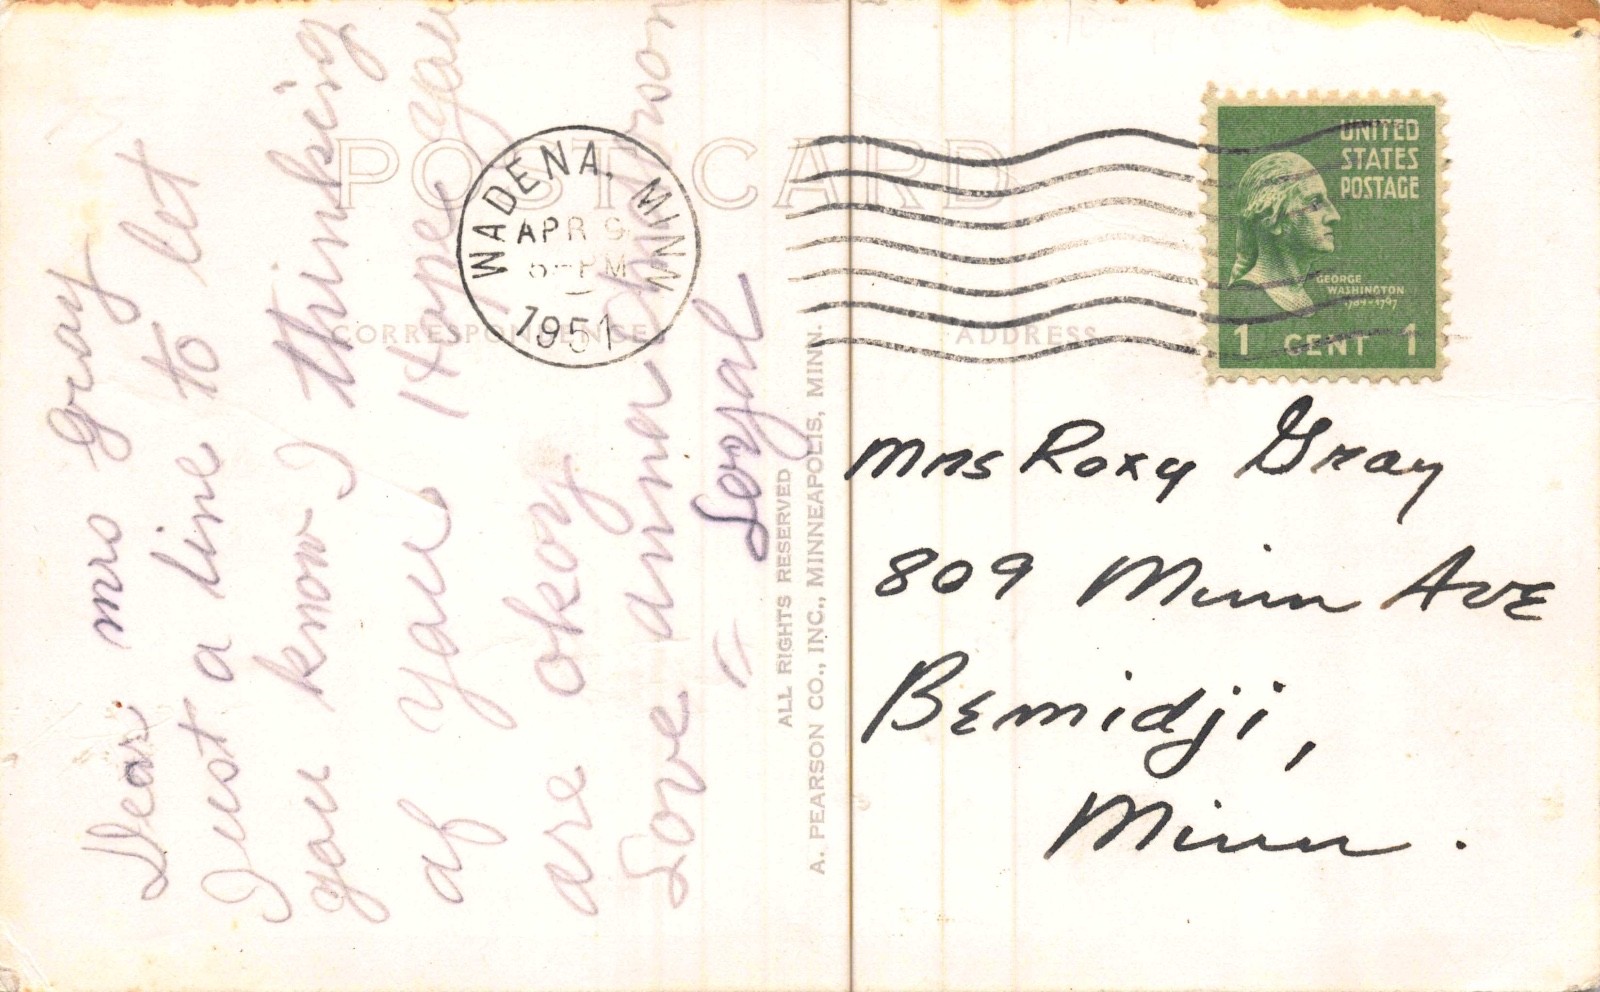 POST CARD
CORRESPONDENCE
ADDRESS
WADENA, MINN
APR 9
5-PM
1951
UNITED
STATES
POSTAGE
GEORGE
WASHINGTON
1789-1797
1 CENT 1
Dear mrs Gray
Just a line to let
you know I thinksing
af you Hope you
are okay
Love anna
" Loyal
ALL RIGHTS RESERVED
A. PEARSON CO., INC., MINNEAPOLIS, MINN.
Mrs Roxy Gray
809 Minn Ave
Bemidji,
Minn.